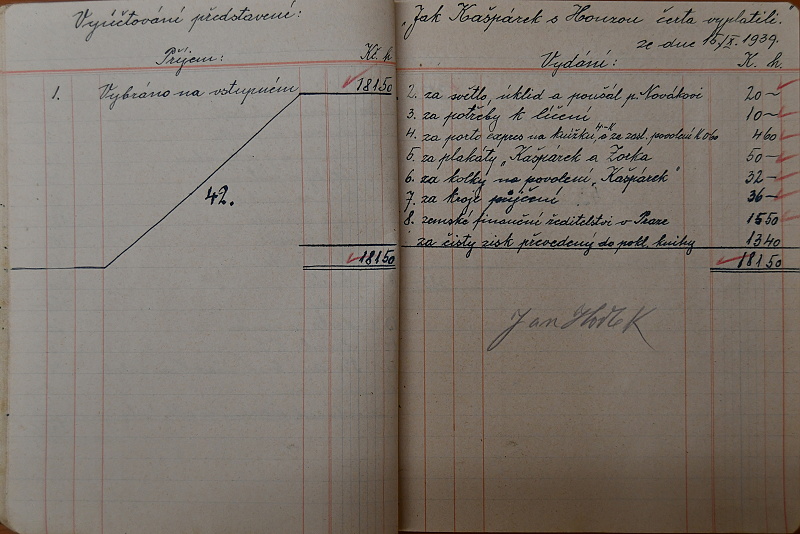 Vyúčtování představení:
Příjem: Kč. h
1. Vybráno na vstupném 181 50
42.
181 50
"Jak Kašpárek s Honzou čerta vyplatili.
ze dne 15/X. 1939.
Vydání: K. h.
2. za světlo, úklid a poušál p. Novákovi 20 –
3. za potřeby k líčení 10 –
4. za porto expres na knížku, a ze zasl. povolení K 0.60 4 60
5. za plakáty „Kašpárek a Zorka 50 –
6. za kolky na povolení „Kašpárek" 32 –
7. za kroje půjčení 36 –
8. zemské finanční ředitelství v Praze 15 50
za čistý zisk převedený do pokl. knihy 13 40
181 50
Jan